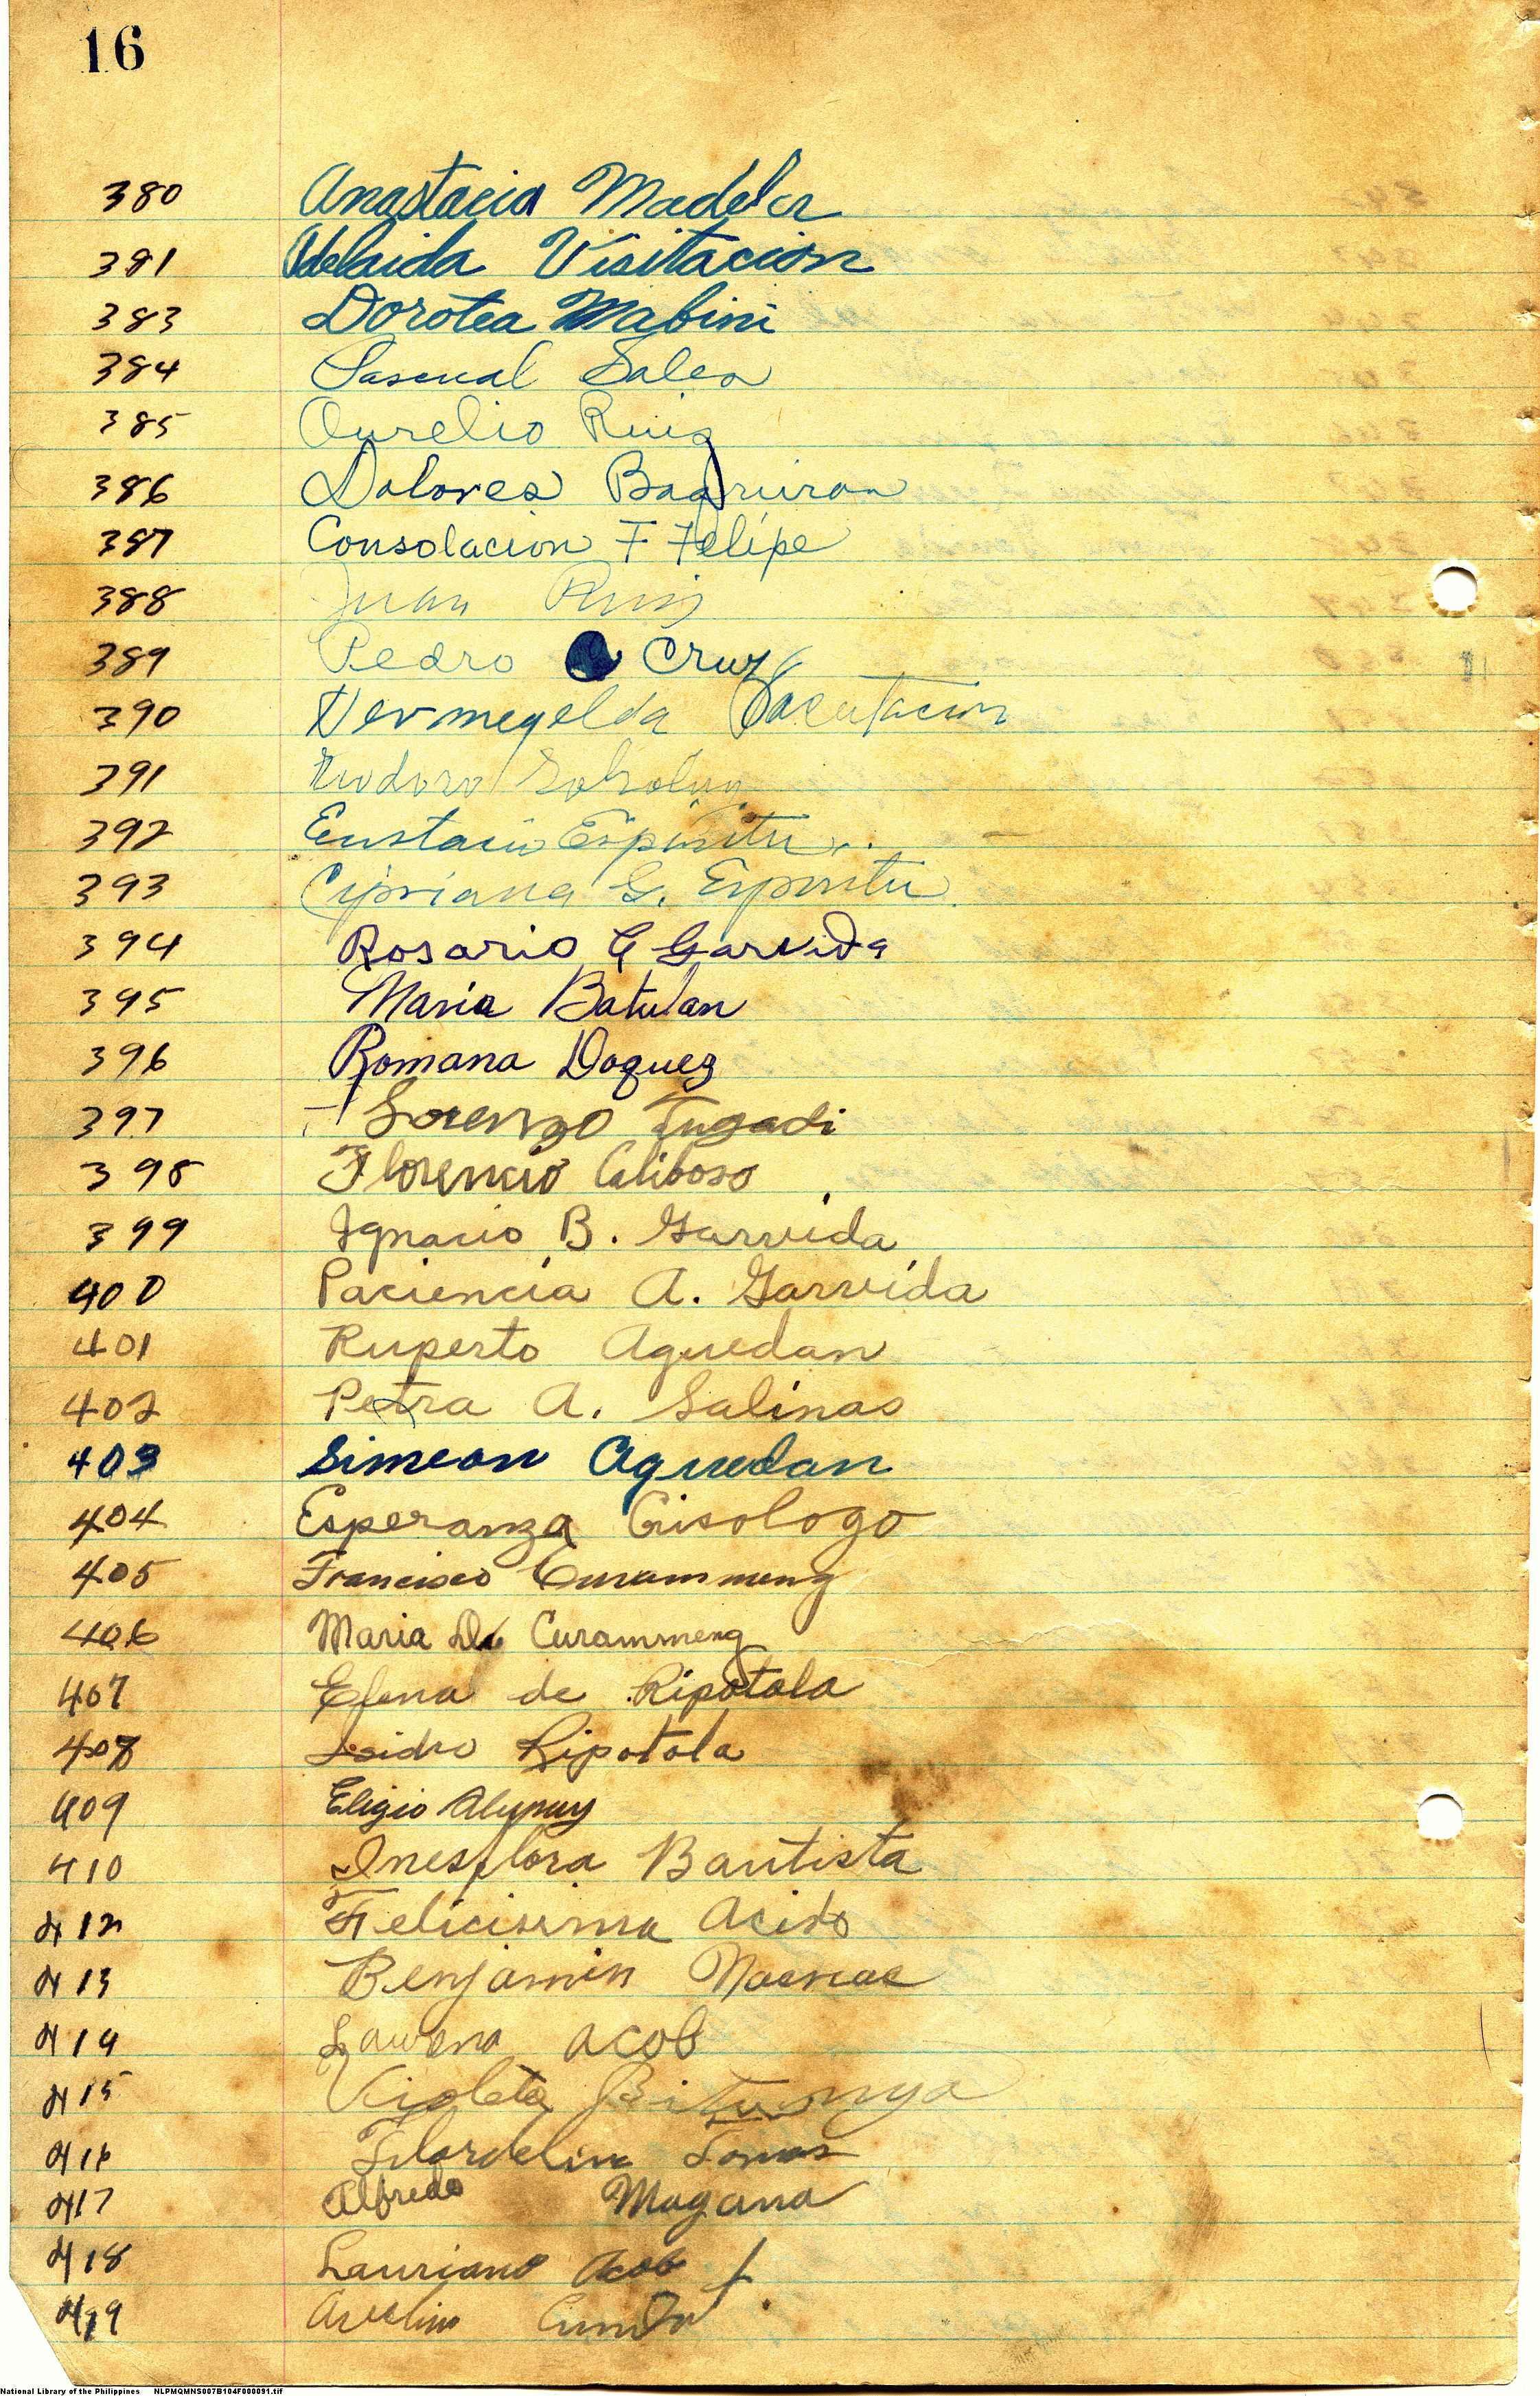 16
380 Anastacia Madela
381 Adelaida Visitacion
383 Dorotea Mabini
384 Pascual Sales
385 Aurelio Ruiz
386 Dolores
387 Consolacion F Felipe
388 Juan Ruiz
389 Pedro Cruz
390
391 Teodoro
392 Eustacio Espiritu
393 Cipriana G. Espiritu
394 Rosario G Garvida
395 Maria Batulan
396 Romana Daquez
397 Lorenzo Tugadi
398 Florencio Caliboso
399 Ignacio B. Garvida
400 Paciencia A. Garvida
401 Ruperto Aguedan
402 Petra A. Salinas
403 Simeon Aguedan
404 Esperanza Crisologo
405 Francisco Curammeng
406 Maria De Curammeng
407 Elena de Ripotola
408 Isidro Ripotola
409 Eligio Alupay
410 Inesflora Bautista
412 Felicisima Acido
413 Benjamin Nacnac
414 Acob
415 Violeta Bitunga
416 Tomas
417 Alfredo Magana
418 Lauriano Acob
419 Avelino
National Library of the Philippines NLPMQMNS007B104F000091.tif